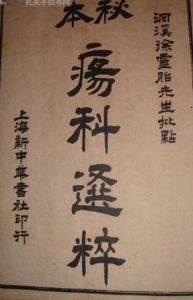 洄溪徐靈胎先生批點
秘本
瘍科選粹
上海新中華書社印行